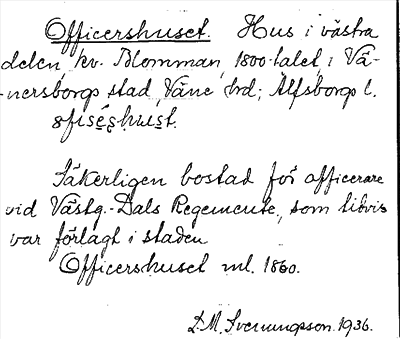 Officershuset. Hus i västra
delen, kv. Blomman, 1800-talet i Vä-
nersborgs stad, Väne hd; Älfsborgs l.
åfisęṣhuṣt.
Säkerligen bostad för officerare
vid Västg.-Dals Regemente, som tidvis
var förlagt i staden
Officershuset ml. 1860.
D.M. Svenungsson. 1936.